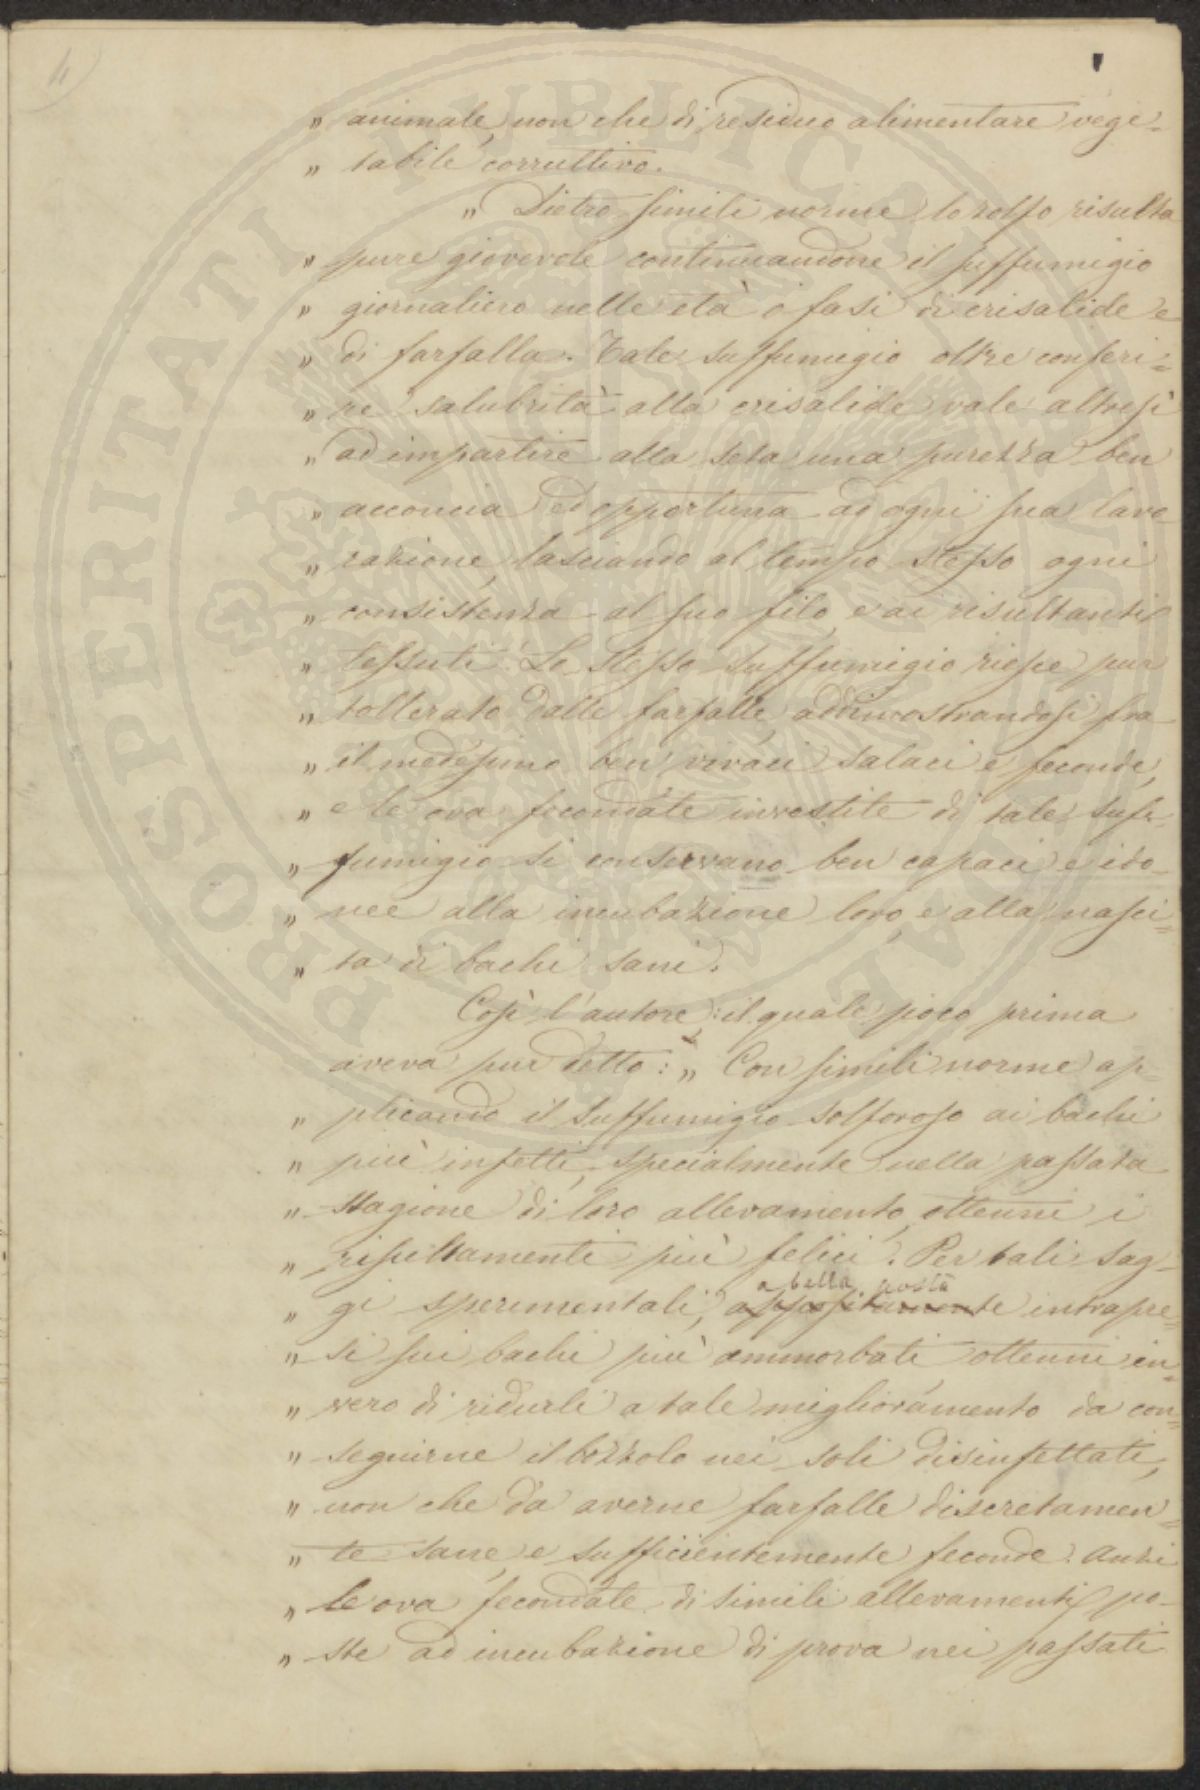 4)
„ animale, non che di residuo alimentare vege=
„ tabile corruttivo.
„ Dietro simili norme lo zolfo risulta
„ pure giovevole continuandone il suffumigio
„ giornaliero nelle età o fasi di crisalide e
„ di farfalla. Tale suffumigio oltre conferi=
„ re salubrità alla crisalide vale altresì
„ ad impartire alla seta una purezza ben
„ acconcia ed opportuna ad ogni sua lavo
„ razione, lasciando al tempo stesso ogni
„ consistenza al suo filo, e ai risultanti
„ tessuti. Lo stesso suffumigio riesce pur
„ tollerato dalle farfalle, addimostrandosi fra
„ il medesimo ben vivaci salaci e feconde,
„ e le ova fecondate investite di tale suf=
„ fumigio si conservano ben capaci e ido=
„ nee alla incubazione loro, e alla nasci=
„ ta di bachi sani.
Così l'autore: il quale poco prima
aveva pur detto: „ Con simili norme ap=
„ plicando il suffumigio solforoso ai bachi
„ più infetti, specialmente nella passata
„ stagione di loro allevamento, ottenni i
„ risultamenti più felici. Per tali sag=
a bella posta
„ gi sperimentali, appositamente intrapre=
„ si sui bachi più ammorbati ottenni in=
„ vero di ridurli a tale miglioramento da con=
„ seguirne il bozzolo nei soli disinfettati,
„ non che da averne farfalle discretamen=
„ te sane, e sufficientemente feconde. Anzi
„ le ova fecondate di simili allevamenti po=
„ ste ad incubazione di prova nei passati
PROSPERITATI PUBLICAE